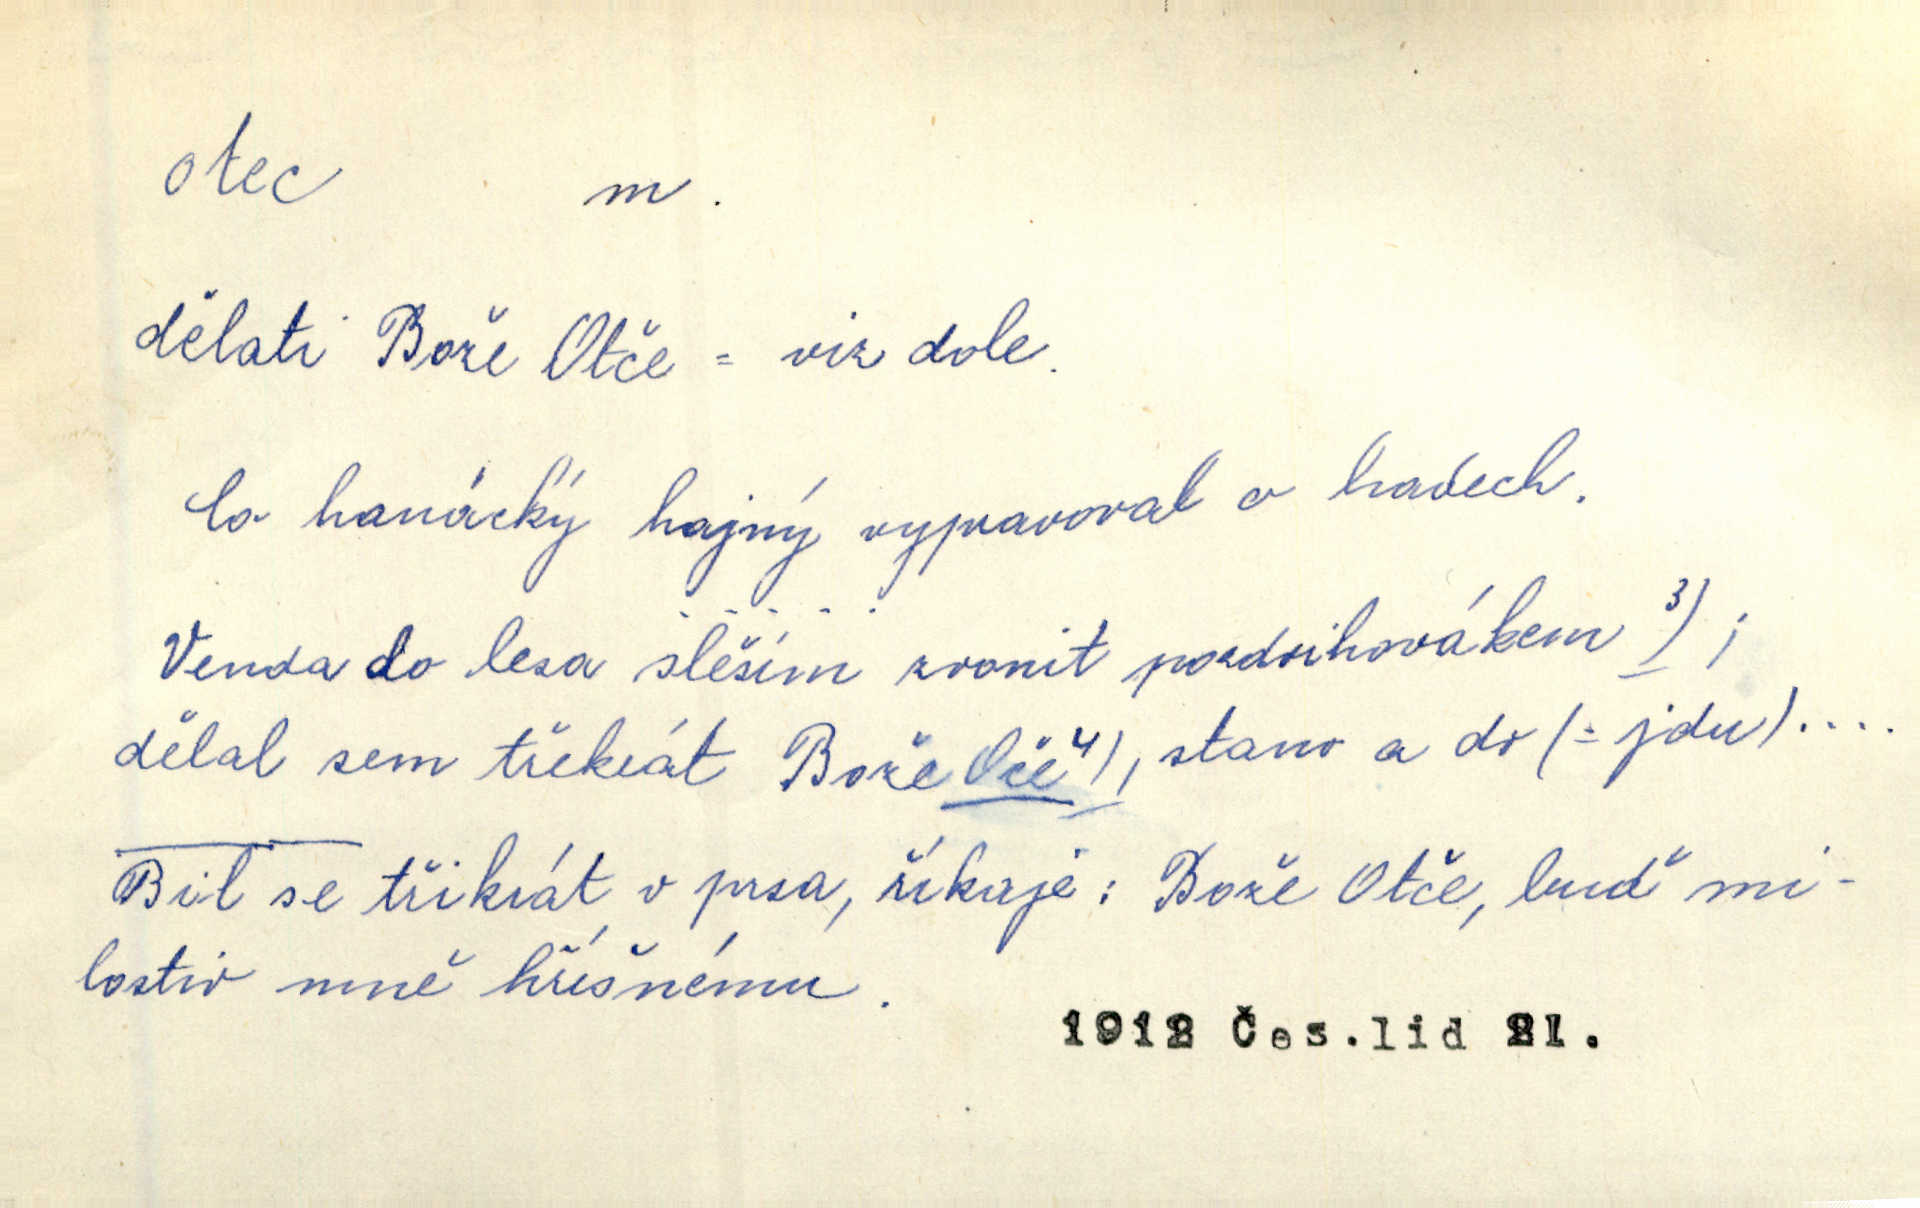 otec m.
dělati Bože Otče = viz dole.
Co hanácký hajný vypravoval o hadech.
. . . . .
Venda do lesa slěšim zvonit pozdvihovákem ³) ;
dělal sem třekrát Bože Oče ⁴), stano a do (= jdu)....
Bil se třikrát v prsa, říkaje : Bože Otče, buď mi-
lostiv mně hříšnému.
1912 Čes.lid 21.